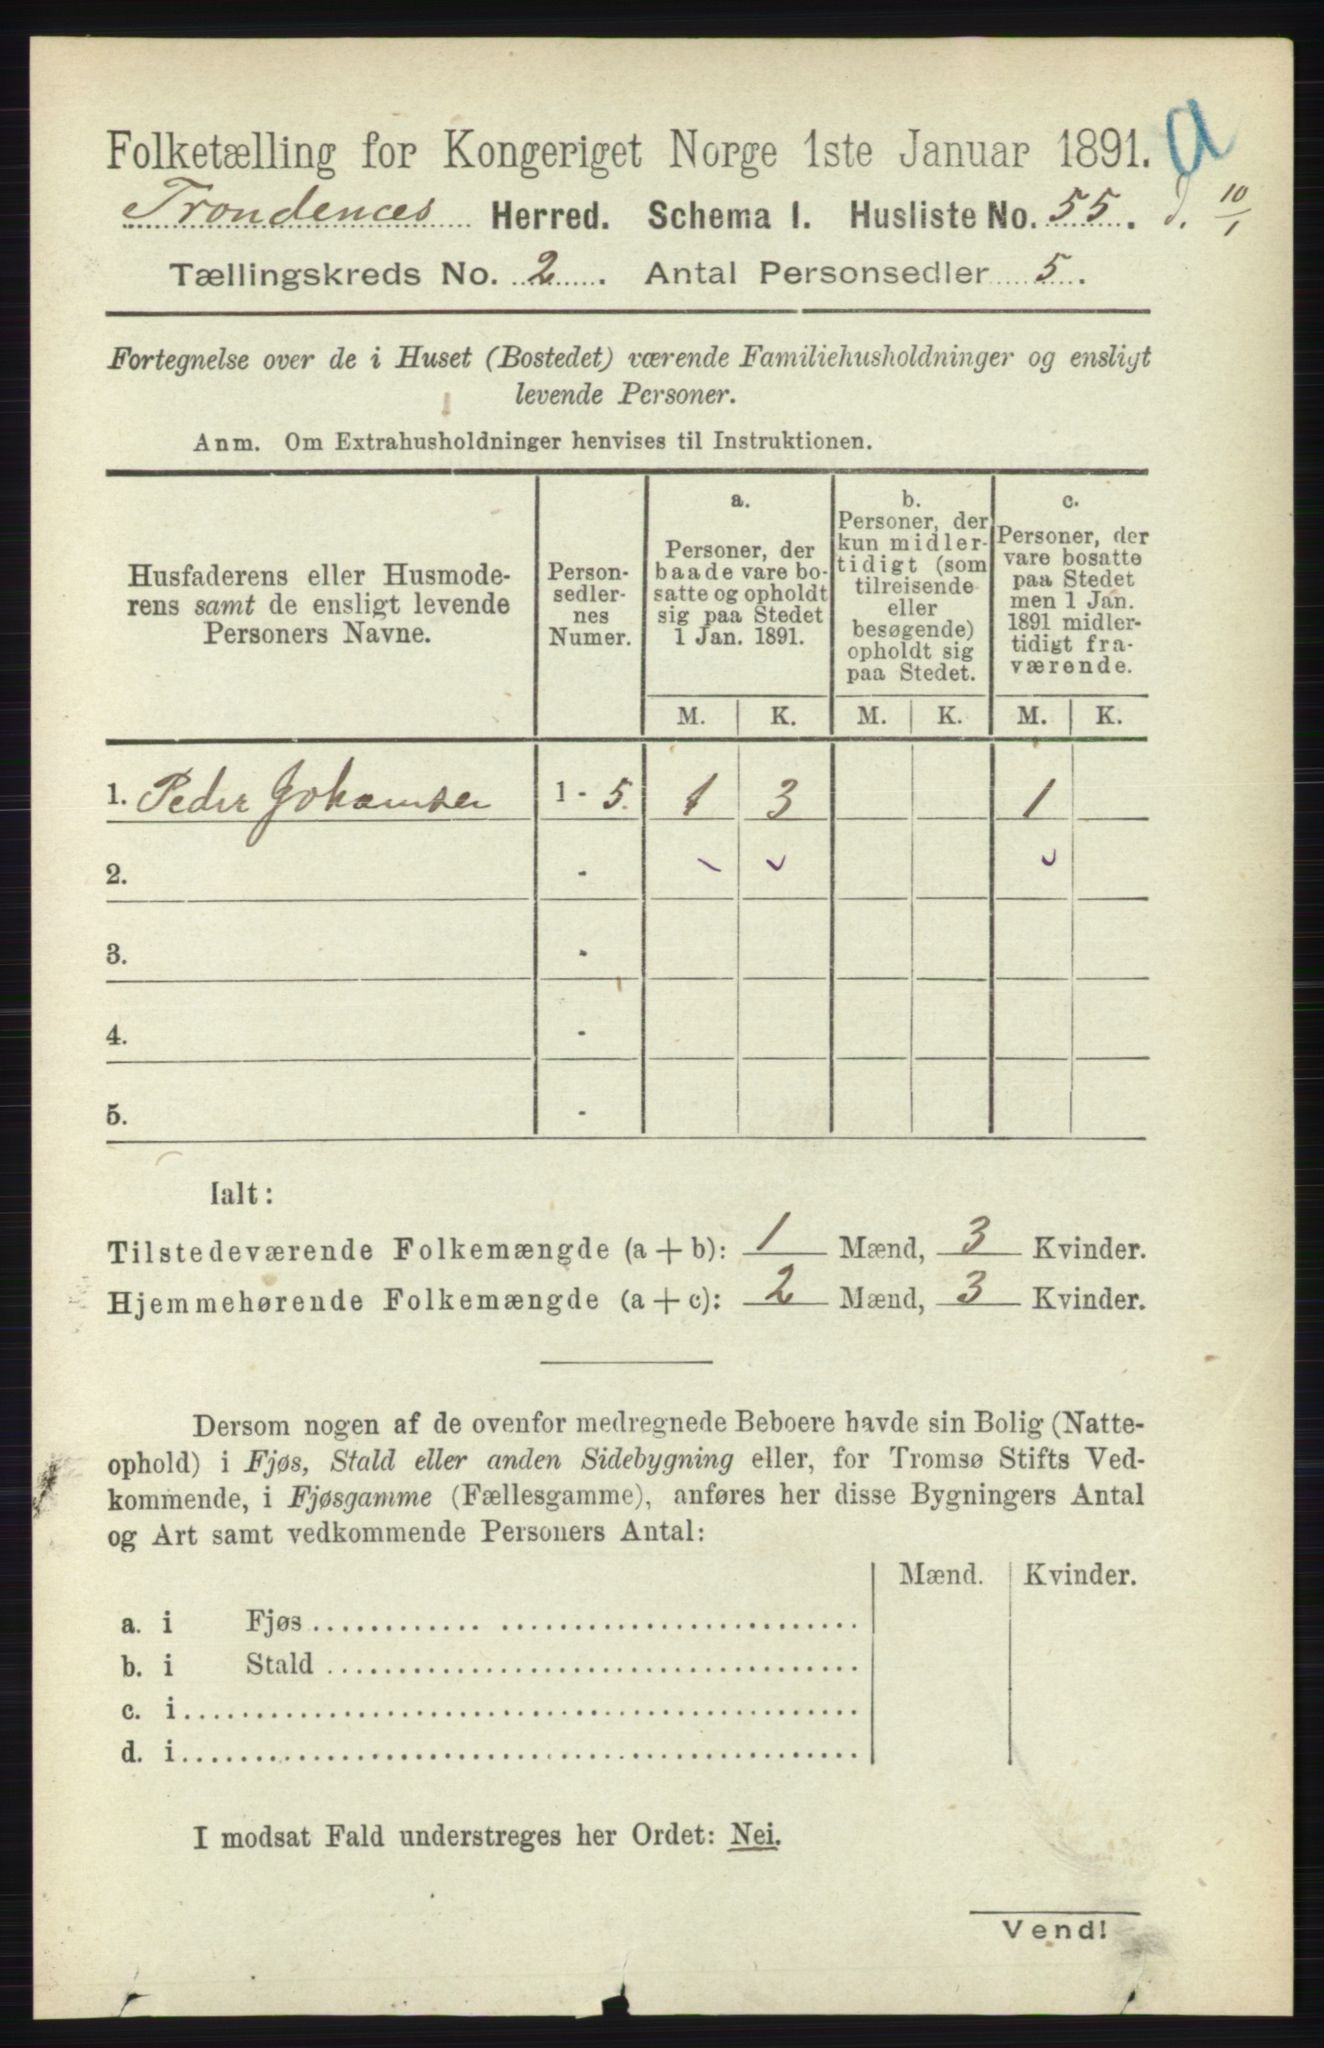 Folketælling for Kongeriget Norge 1ste Januar 1891. a
Trondences Herred. Schema I. Husliste No. 55. d. 10/1
Tællingskreds No. 2. Antal Personsedler 5.
Fortegnelse over de i Huset (Bostedet) værende Familiehusholdninger og ensligt
levende Personer.
Anm. Om Extrahusholdninger henvises til Instruktionen.
Husfaderens eller Husmode-
rens samt de ensligt levende
Personers Navne.
Person-
sedler-
nes
Numer.
a.
Personer, der
baade vare bo-
satte og opholdt
sig paa Stedet
1 Jan. 1891.
b.
Personer, der
kun midler-
tidigt (som
tilreisende
eller
besøgende)
opholdt sig
paa Stedet.
c.
Personer, der
vare bosatte
paa Stedet
men 1 Jan.
1891 midler-
tidigt fra-
værende.
M. K. M. K. M. K.
1. Peder Johansen 1 - 5. 1 3 1
2. -
3. -
4. -
5. -
Ialt:
Tilstedeværende Folkemængde (a + b): 1 Mænd, 3 Kvinder.
Hjemmehørende Folkemængde (a + c): 2 Mænd, 3 Kvinder.
Dersom nogen af de ovenfor medregnede Beboere havde sin Bolig (Natte-
ophold) i Fjøs, Stald eller anden Sidebygning eller, for Tromsø Stifts Ved-
kommende, i Fjøsgamme (Fællesgamme), anføres her disse Bygningers Antal
og Art samt vedkommende Personers Antal:
Mænd. Kvinder.
a. i Fjøs
b. i Stald
c. i
d. i
I modsat Fald understreges her Ordet: Nei.
Vend!